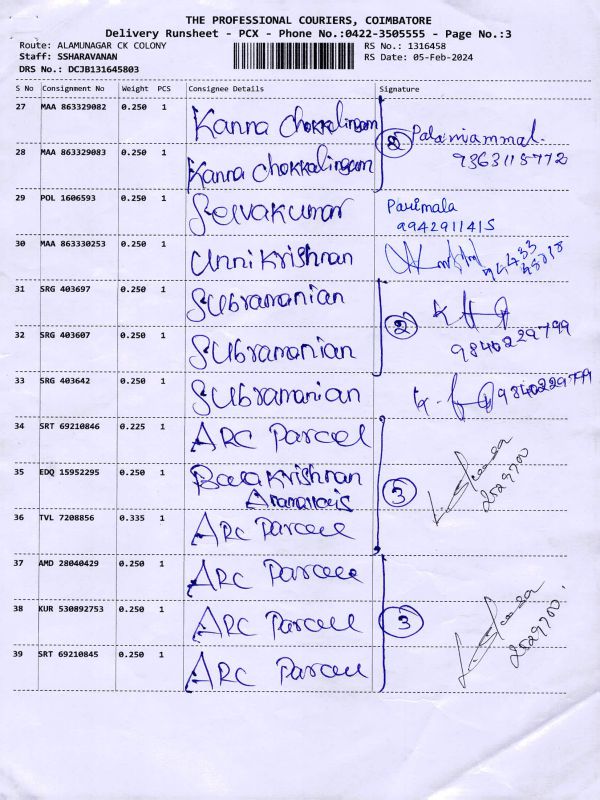 THE PROFESSIONAL COURIERS, COIMBATORE
Delivery Runsheet - PCX - Phone No.:0422-3505555 - Page No.:3
Route: ALAMUNAGAR CK COLONY
RS No.: 1316458
Staff: SSHARAVANAN
RS Date: 05-Feb-2024
DRS No.: DCJB131645803
S No Consignment No Weight PCS Consignee Details Signature
27 MAA 863329082 0.250 1 Kanna Chokkalingam
2 Palaniammal.
9363115772
28 MAA 863329083 0.250 1 Kanna Chokkalingam
29 POL 1606593 0.250 1 Selvakumar Parimala
9942911415
30 MAA 863330253 0.250 1 Unnikrishnan
31 SRG 403697 0.250 1 Subramanian
2
9840229799
32 SRG 403607 0.250 1 Subramanian
33 SRG 403642 0.250 1 Subramanian
34 SRT 69210846 0.225 1 ARC Parcel
35 EDQ 15952295 0.250 1 Balakrishnan
3
2529700
36 TVL 7208856 0.335 1 ARC Parcel
37 AMD 28040429 0.250 1 ARC Parcel
38 KUR 530892753 0.250 1 ARC Parcel
3
2529700.
39 SRT 69210845 0.250 1 ARC Parcel